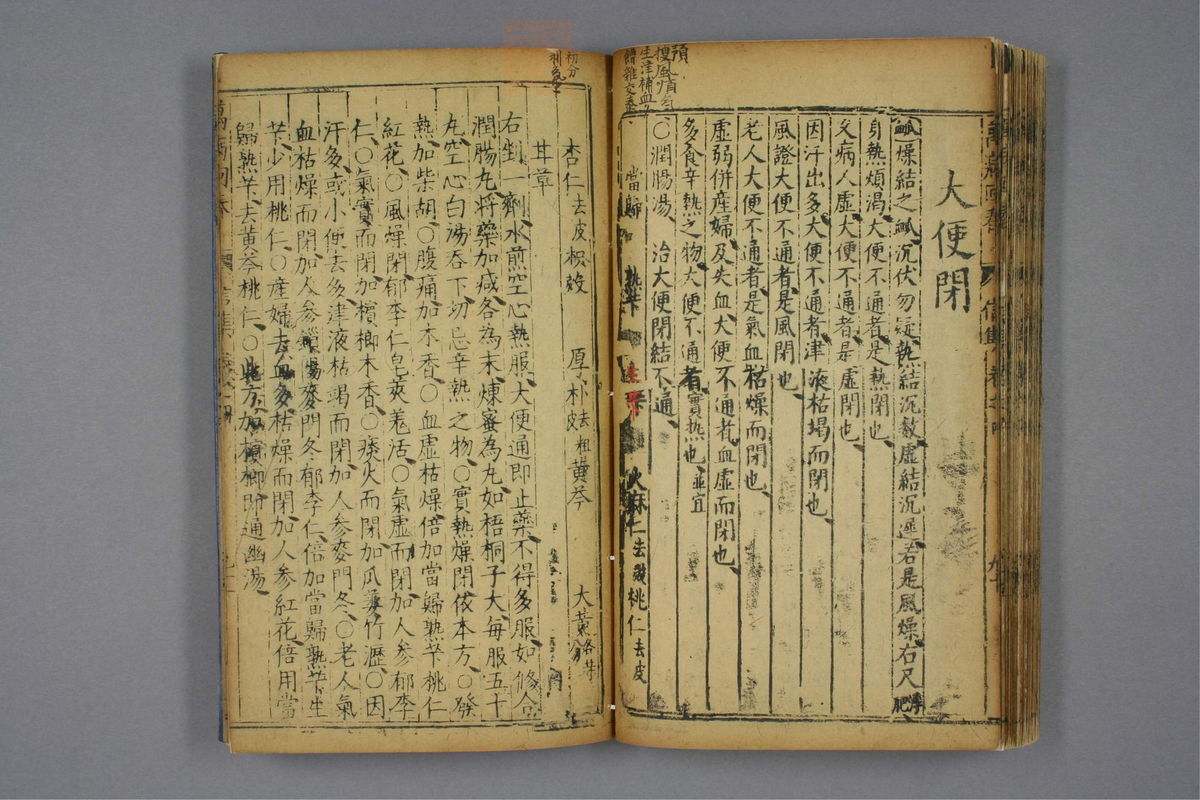 大便閉
衇燥結之衇沉伏勿疑熱結沉數虛結沉遲若是風燥右尺浮肥
身熱煩渴大便不通者是熱閉也
久病人虛大便不通者是虛閉也
因汗出多大便不通者津液枯竭而閉也
風證大便不通者是風閉也
老人大便不通者是氣血枯燥而閉也
虛弱併産婦及失血大便不通者血虛而閉也
多食辛熱之物大便不通者實熱也並宜
〇潤腸湯 治大便閉結不通
當歸 熟苄 火麻仁去殼 桃仁去皮
杏仁去皮 枳殼 厚朴去粗皮 黄芩 大黄各等分
甘草
右剉一劑水煎空心熱服大便通即止藥不得多服如修合
潤腸丸將藥加減各為末煉蜜為丸如梧桐子大每服五十
丸空心白湯吞下切忌辛熱之物〇實熱燥閉依本方〇發
熱加柴胡〇腹痛加木香〇血虛枯燥倍加當歸熟苄桃仁
紅花〇風燥閉郁李仁皂莢羌活〇氣虛而閉加人參郁李
仁〇氣實而閉加檳榔木香〇痰火而閉加瓜蔞竹瀝〇因
汗多或小便去多津液枯竭而閉加人參麥門冬〇老人氣
血枯燥而閉加人參鎖陽麥門冬郁李仁倍加當歸熟苄生
苄少用桃仁〇産婦去血多枯燥而閉加人參紅花倍用當
歸熟苄去黄芩桃仁〇此方加檳榔即通幽湯